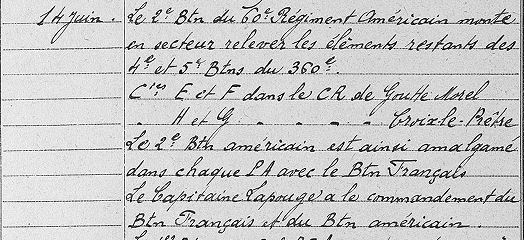 14 Juin. Le 2e Btn du 60e Régiment Américain monte
en secteur relever les éléments restants des
4e et 5e Btns du 360e.
Cies E et F dans le CR de Goutte Morel
" H et G - - - - - Croix-le-Prêtre
Le 2e Btn américain est ainsi amalgamé
dans chaque PA avec le Btn Français
Le Capitaine Lapouge a le commandement du
Btn Français et du Btn américain.